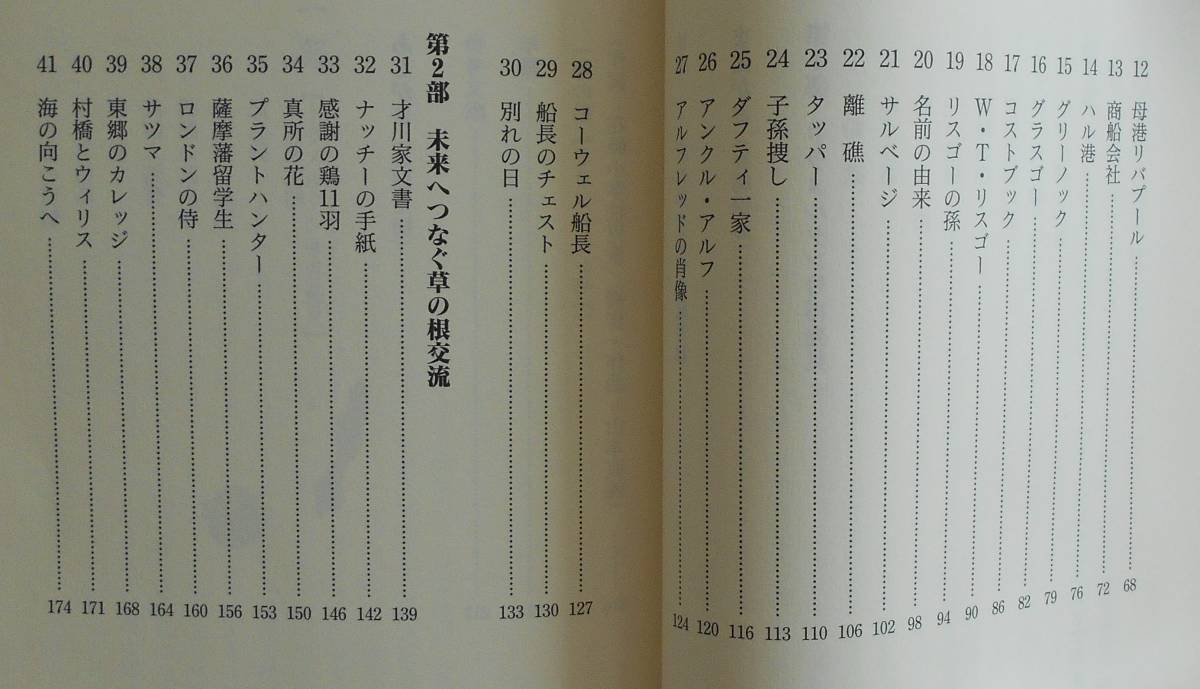 12 母港リバプール 68
13 商船会社 72
14 ハル港 76
15 グリーノック 79
16 グラスゴー 82
17 コストブック 86
18 W・T・リスゴー 90
19 リスゴーの孫 94
20 名前の由来 98
21 サルベージ 102
22 離礁 106
23 タッパー 110
24 子孫捜し 113
25 ダフティ一家 116
26 アンクル・アルフ 120
27 アルフレッドの肖像 124
28 コーウェル船長 127
29 船長のチェスト 130
30 別れの日 133
第2部 未来へつなぐ草の根交流
31 才川家文書 139
32 ナッチーの手紙 142
33 感謝の鶏11羽 146
34 真所の花 150
35 プラントハンター 153
36 薩摩藩留学生 156
37 ロンドンの侍 160
38 サツマ 164
39 東郷のカレッジ 168
40 村橋とウィリス 171
41 海の向こうへ 174